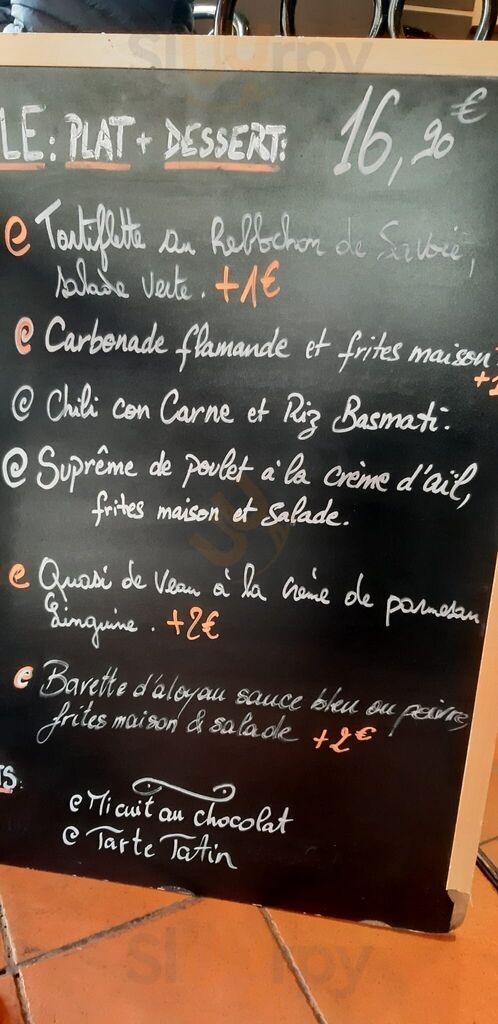 LE: PLAT + DESSERT: 16,90€
Tartiflette au Reblochon de Savoie,
salade verte. +1€
Carbonade flamande et frites maison
+1
Chili con Carne et Riz Basmati.
Suprême de poulet à la crème d'aïl,
frites maison et Salade.
Quasi de veau à la crème de parmesan
Linguine. +2€
Bavette d'aloyau sauce bleu ou poivre,
frites maison & salade +2€
TS
Mi cuit au chocolat
Tarte Tatin
Slurpy
Slurpy